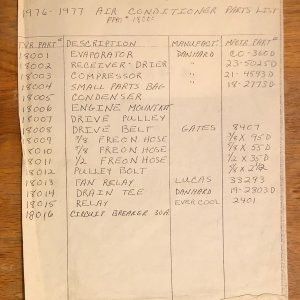 1976-1977 AIR CONDITIONER PARTS LIST
TVR PART# DESCRIPTION MANUFACT. MFGER PART#
18001 EVAPORATOR DANHARD CO-360D
18002 RECEIVER-DRIER " 23-5025D
18003 COMPRESSOR " 21-4543D
18004 SMALL PARTS BAG " 18-2773D
18005 CONDENSER
18006 ENGINE MOUNT KIT
18007 DRIVE PULLEY
18008 DRIVE BELT GATES 8407
18009 5/8 FREON HOSE
18010 5/8 FREON HOSE
18011 1/2 FREON HOSE
18012 PULLEY BOLT
18013 FAN RELAY LUCAS 33293
18014 DRAIN TEE DANHARD 19-2803D
18015 RELAY EVERCOOL 2401
18016 CIRCUIT BREAKER 30A